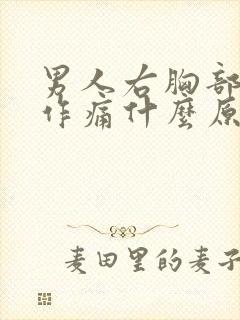 男人右胸部
作痛什麼原
麦田里的麦子